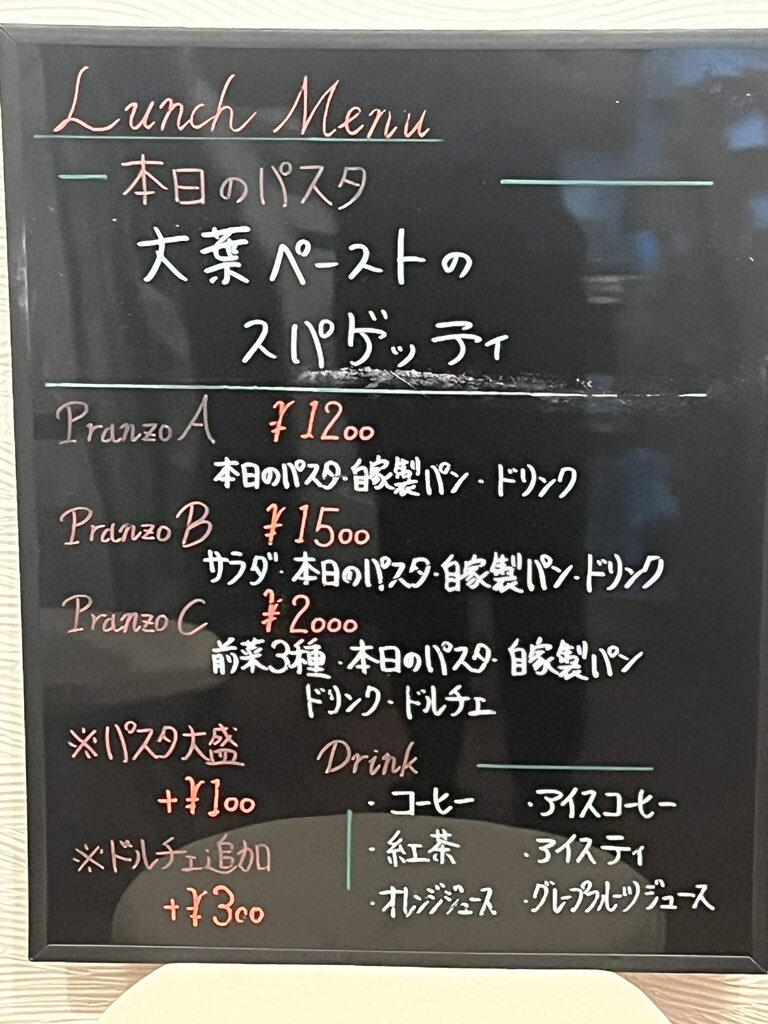 Lunch Menu
本日のパスタ
大葉ペーストの
スパゲッティ
Pranzo A ¥1200
本日のパスタ・自家製パン・ドリンク
Pranzo B ¥1500
サラダ・本日のパスタ・自家製パン・ドリンク
Pranzo C ¥2000
前菜3種・本日のパスタ・自家製パン
ドリンク・ドルチェ
※パスタ大盛
+¥100
※ドルチェ追加
+¥300
Drink
・コーヒー ・アイスコーヒー
・紅茶 ・アイスティ
・オレンジジュース ・グレープフルーツジュース